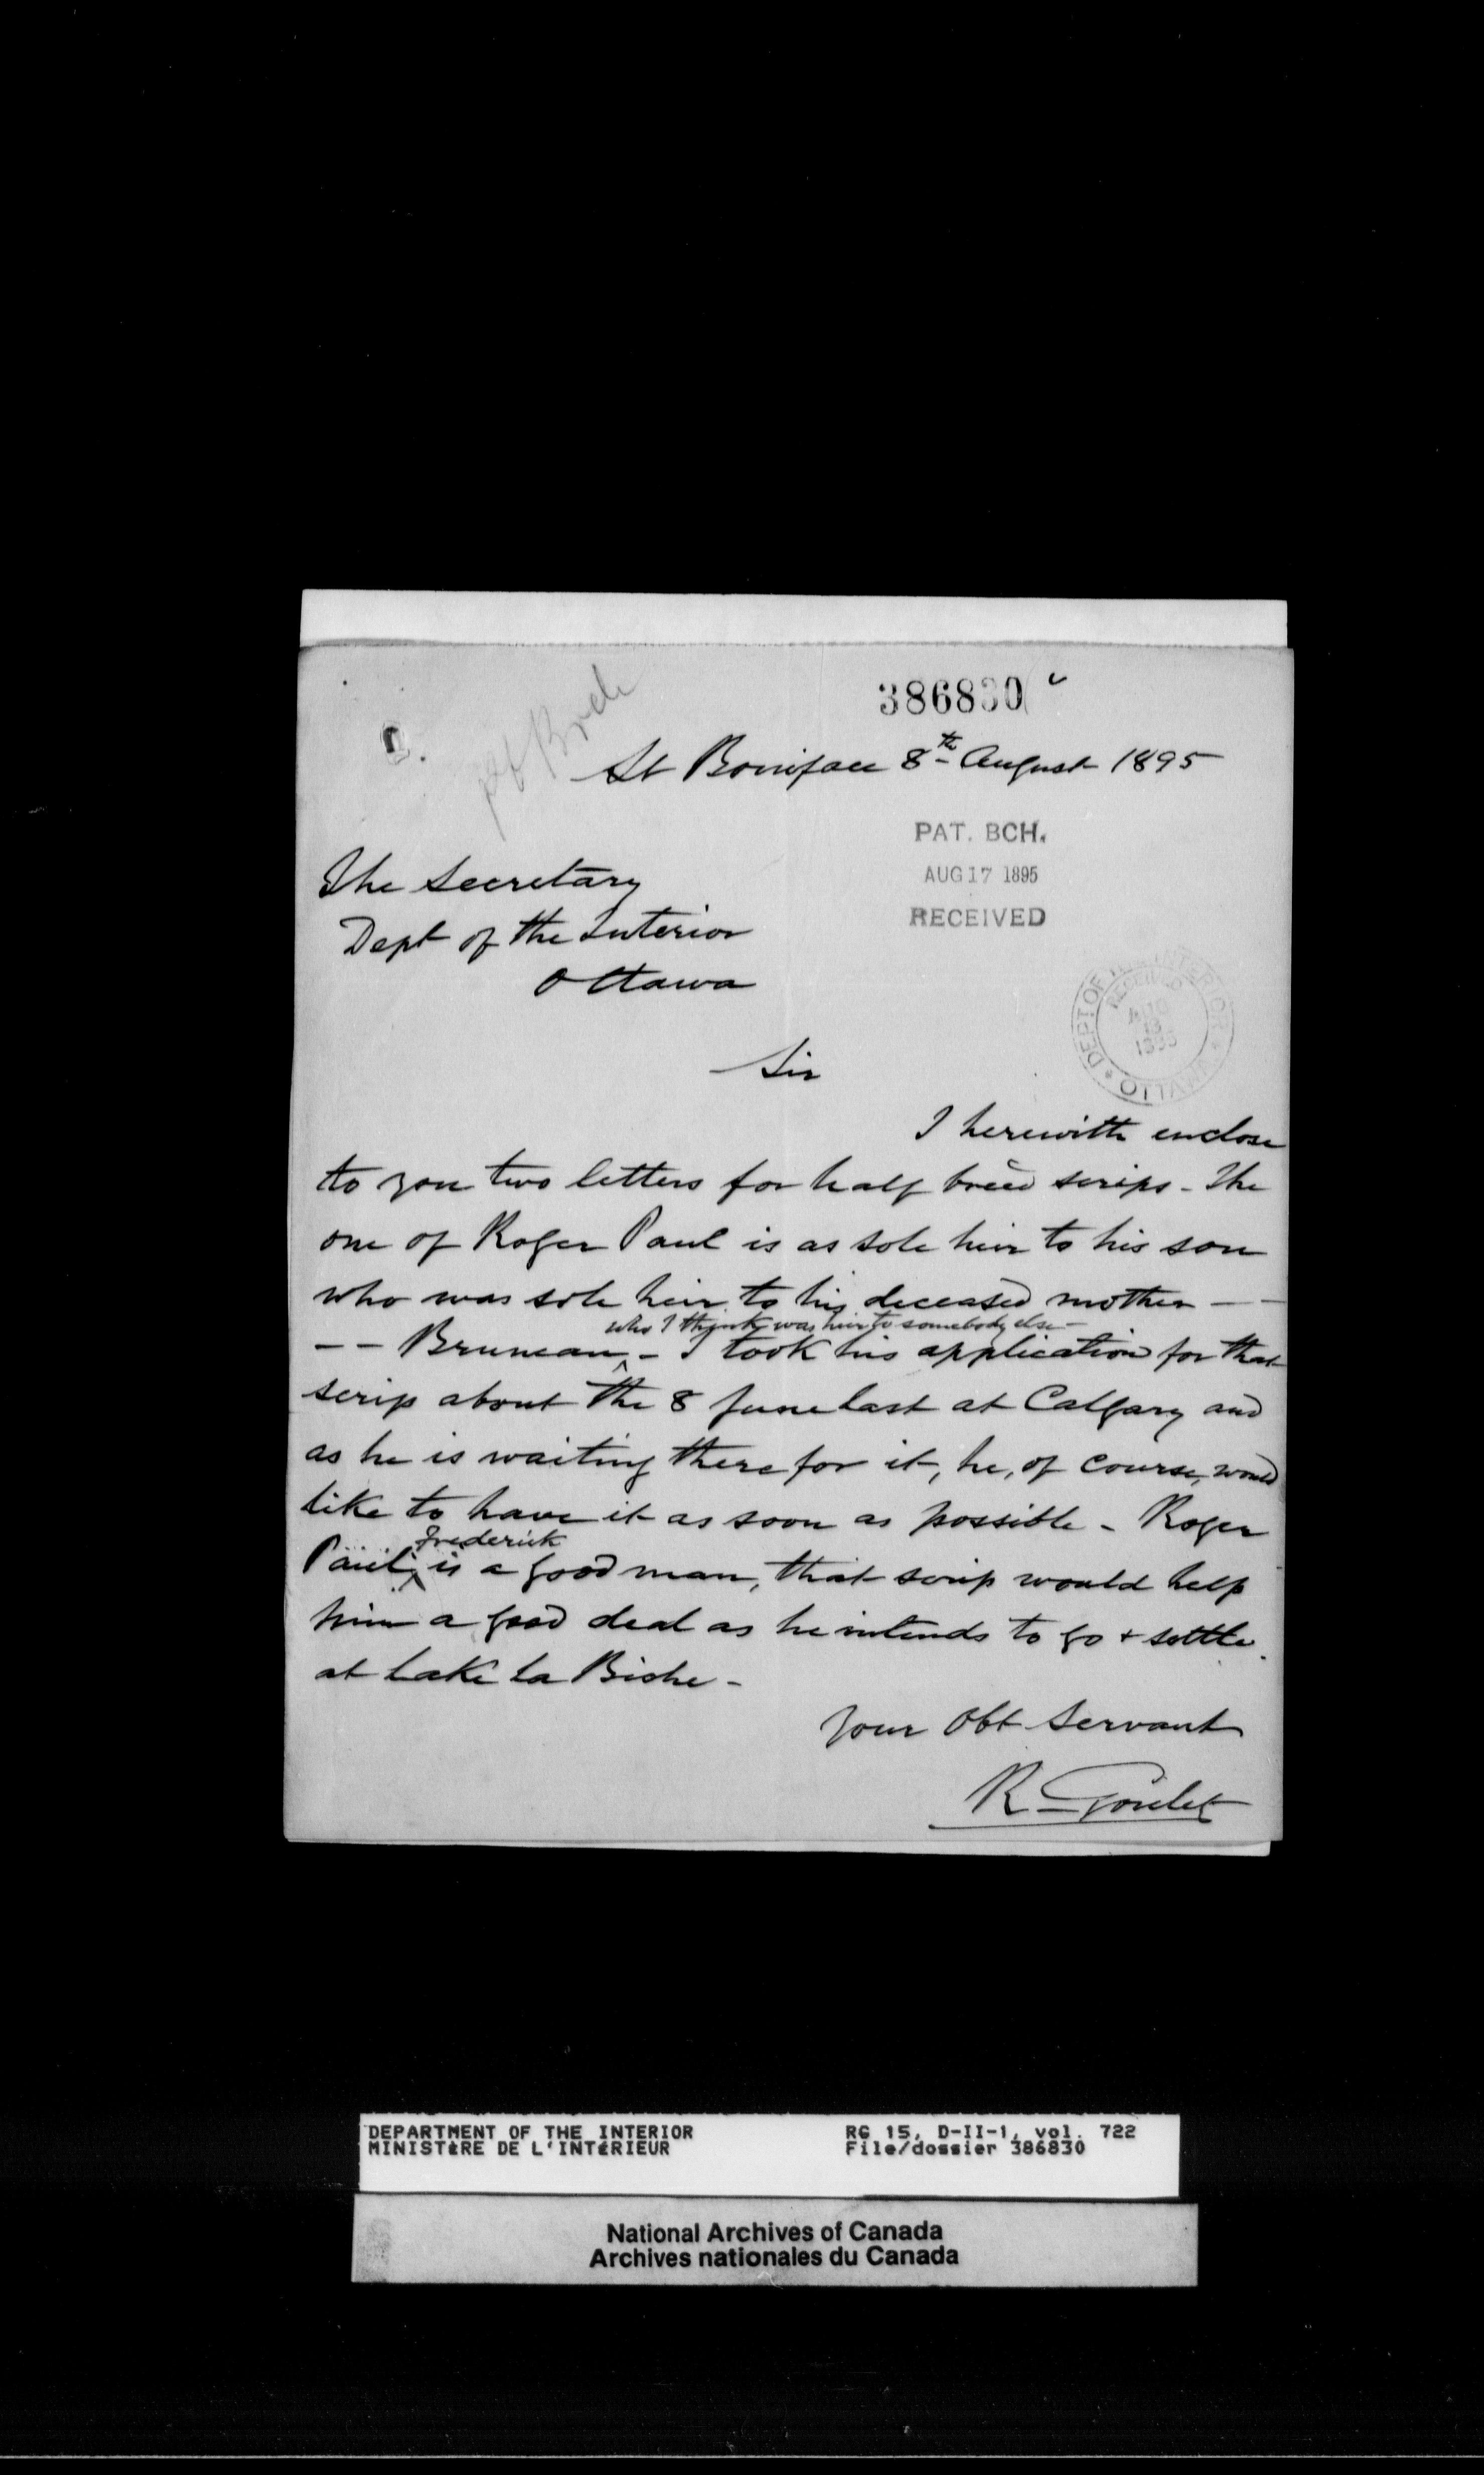 386830
St Boniface 8th August 1895
PAT. BCH.
AUG 17 1895
RECEIVED
The Secretary
Dept of the Interior
Ottawa
DEPT OF THE INTERIOR
RECEIVED
AUG
13
1895
OTTAWA
Sir
I herewith enclose
to you two letters for half breed scrips - The
one of Roger Paul is as sole heir to his son
who was sole heir to his deceased mother - -
who I think was heir to somebody else -
- - Bruneau - I took his application for that
scrip about the 8 June last at Calgary and
as he is waiting there for it, he, of course, would
like to have it as soon as possible - Roger
Frederick
Paul, is a good man, that scrip would help
him a good deal as he intends to go + settle
at Lake la Biche -
Your Obt Servant
R. Goulet
DEPARTMENT OF THE INTERIOR
MINISTÈRE DE L'INTÉRIEUR
RG 15, D-II-1, vol. 722
File/dossier 386830
National Archives of Canada
Archives nationales du Canada